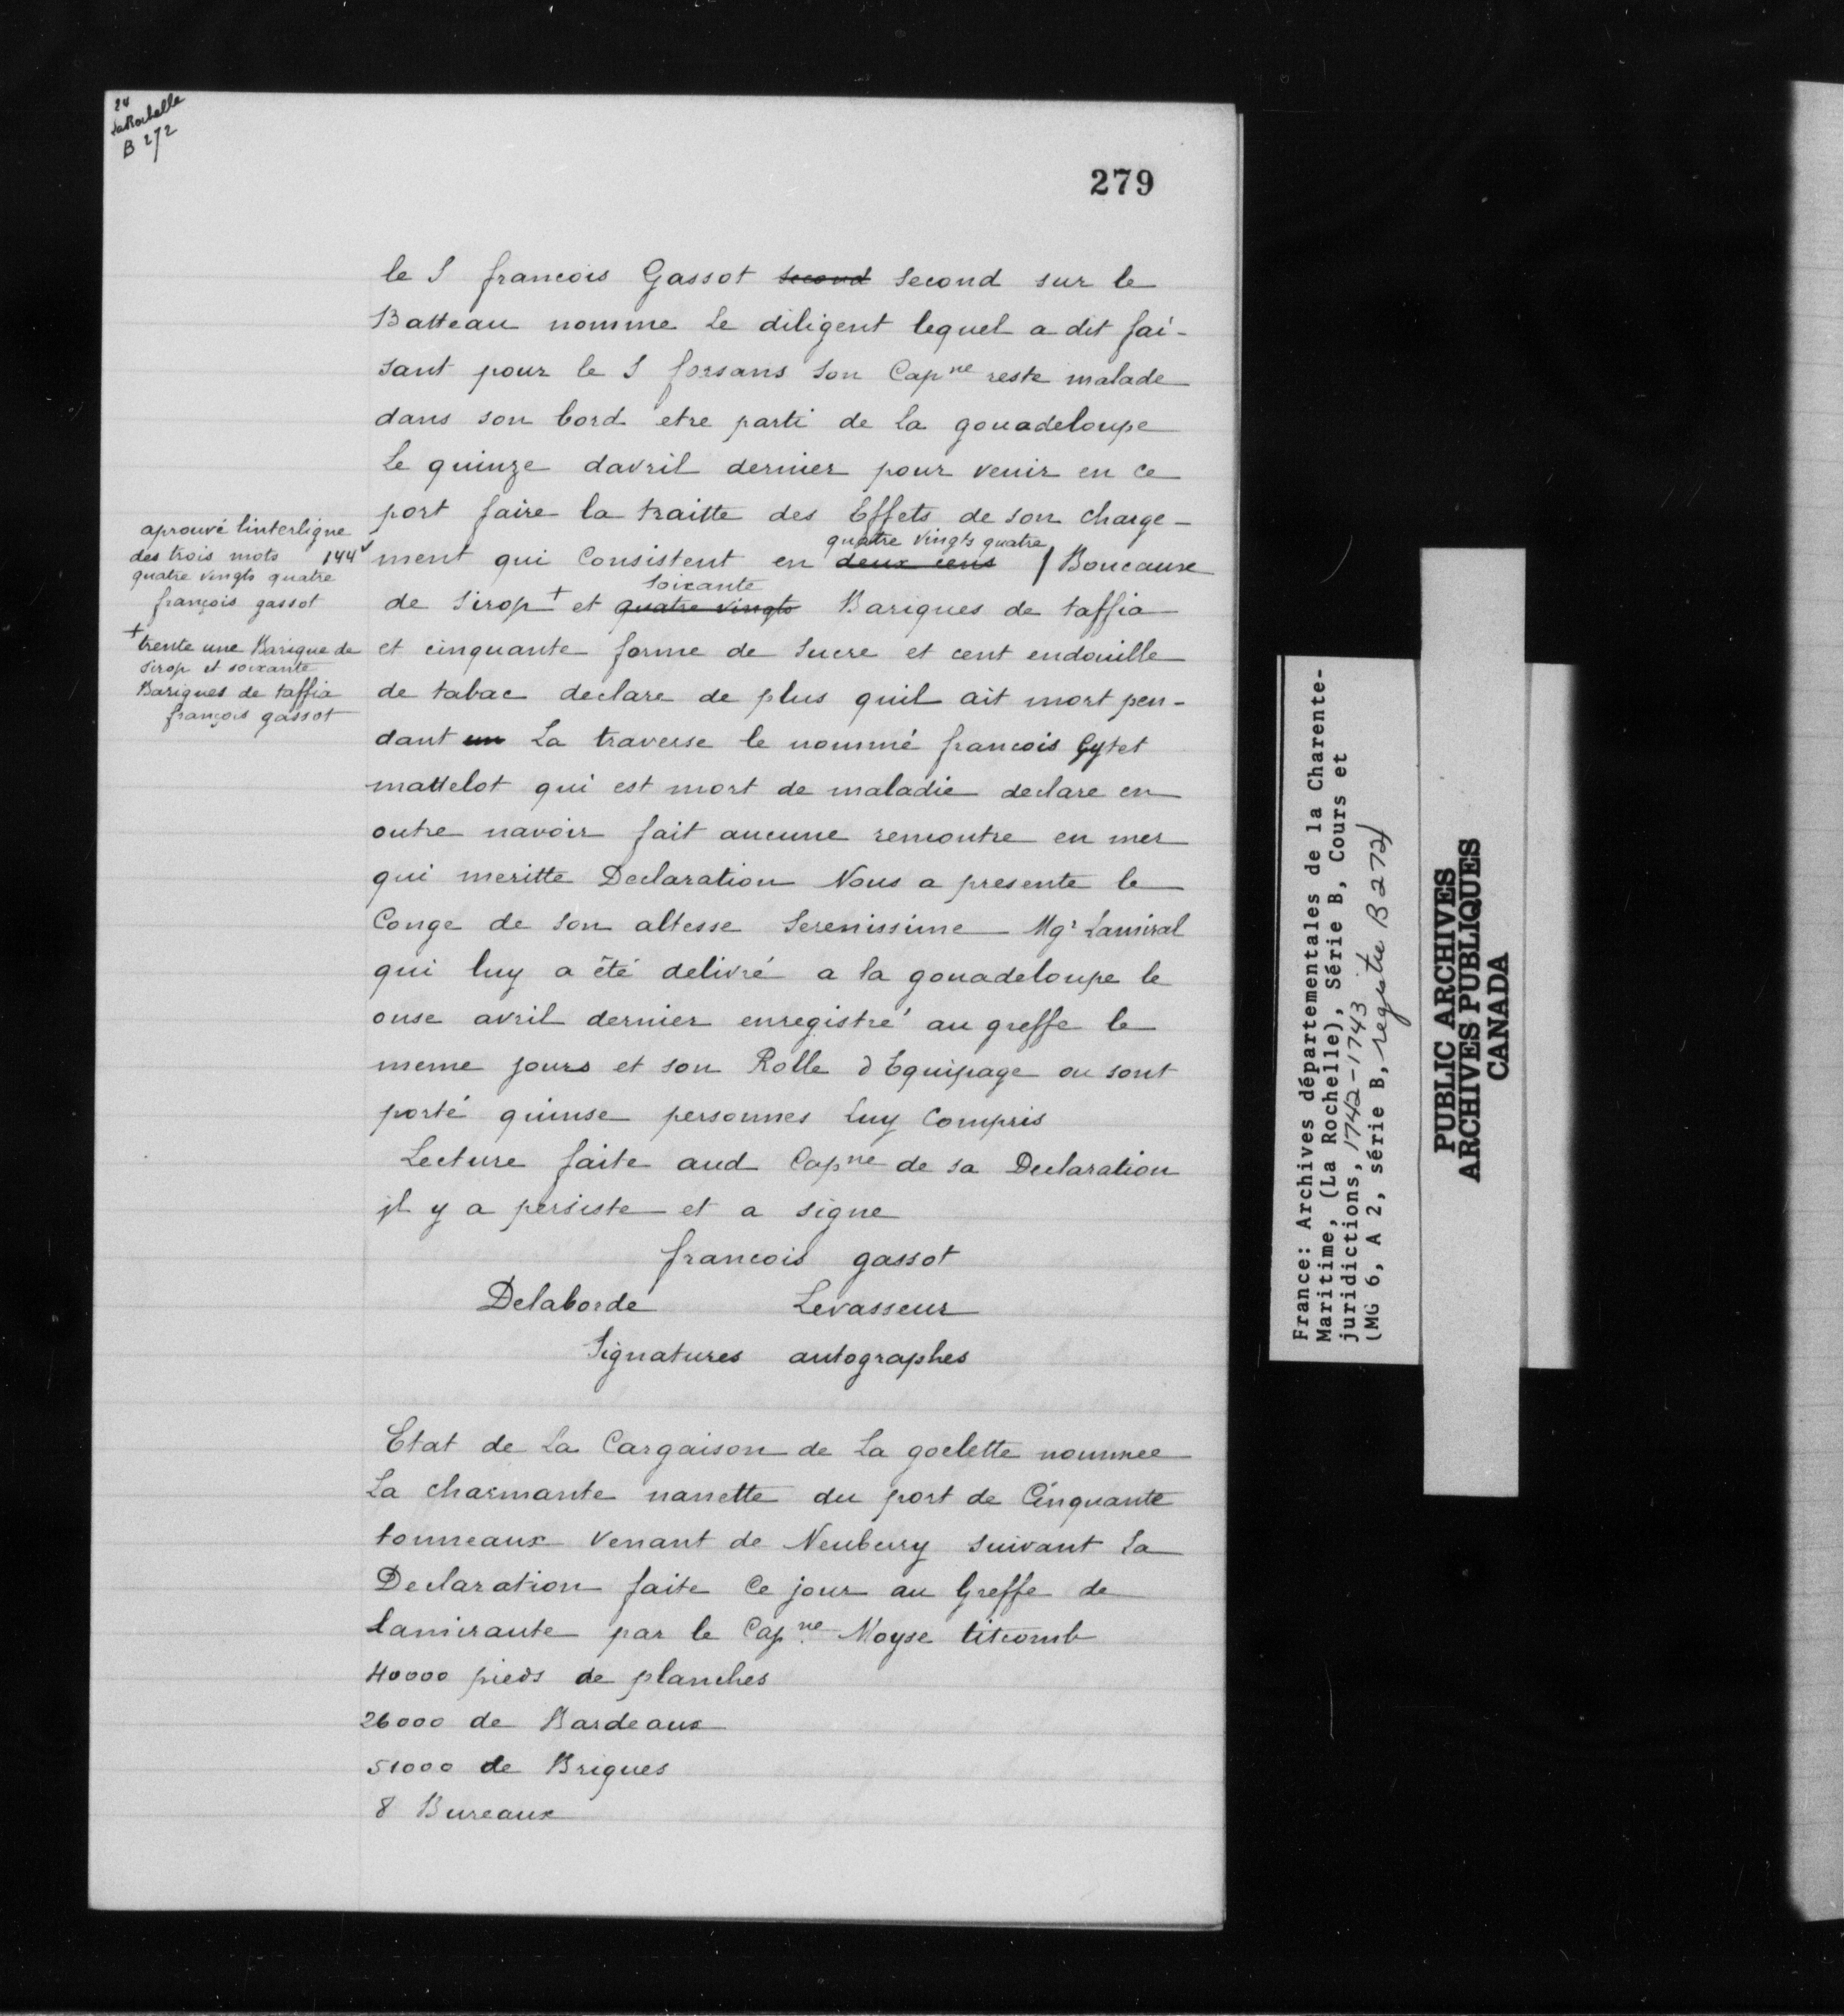 24
LaRochelle
B 272
279
le S francois Gassot second second sur le
Batteau nomme Le diligent lequel a dit fai-
sant pour le S forsans son Capne reste malade
dans son bord etre parti de La gouadeloupe
Le quinze davril dernier pour venir en ce
port faire la traitte des Effets de son charge-
quatre vingts quatre
ment qui Consistent en deux cens / Boucaux
soixante
de Sirop + et quatre vingts Bariques de taffia
et cinquante forme de Sucre et cent endouille
de tabac declare de plus quil ait mort pen-
dant un La traverse le nommé francois Gytet
mattelot qui est mort de maladie declare en
outre navoir fait aucune rencontre en mer
qui meritte Declaration Nous a presente le
Conge de Son altesse Serenissime Mgr Lamiral
qui luy a été delivré a la gouadeloupe le
onse avril dernier enregistré au greffe le
meme jours et son Rolle d Equipage ou sont
porté quinse personnes Luy Compris
Lecture faite aud Capne de sa Declaration
il y a persiste et a signe
francois gassot
Delaborde Levasseur
Signatures autographes
aprouvé linterligne
des trois mots 144
quatre vingts quatre
françois gassot
+ trente une Barique de
Sirop et soixante
Bariques de taffia
françois gassot
Etat de La Cargaison de La goelette nommee
La charmante nanette du port de Cinquante
tonneaux Venant de Neuberry suivant La
Declaration faite Ce jour au Greffe de
Lamiraute par le Capne Moyse titcomb
40000 pieds de planches
26000 de Bardeaux
51000 de Briques
8 Bureaux
France: Archives départementales de la Charente-
Maritime, (La Rochelle), Série B, Cours et
juridictions, 1742-1743
(MG 6, A 2, série B, registre B 272)
PUBLIC ARCHIVES
ARCHIVES PUBLIQUES
CANADA